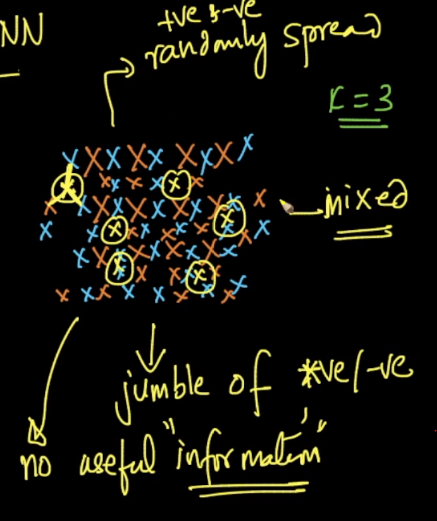 NN
+ve & -ve
randomly spread
K = 3
mixed
jumble of +ve/-ve
no useful "information"